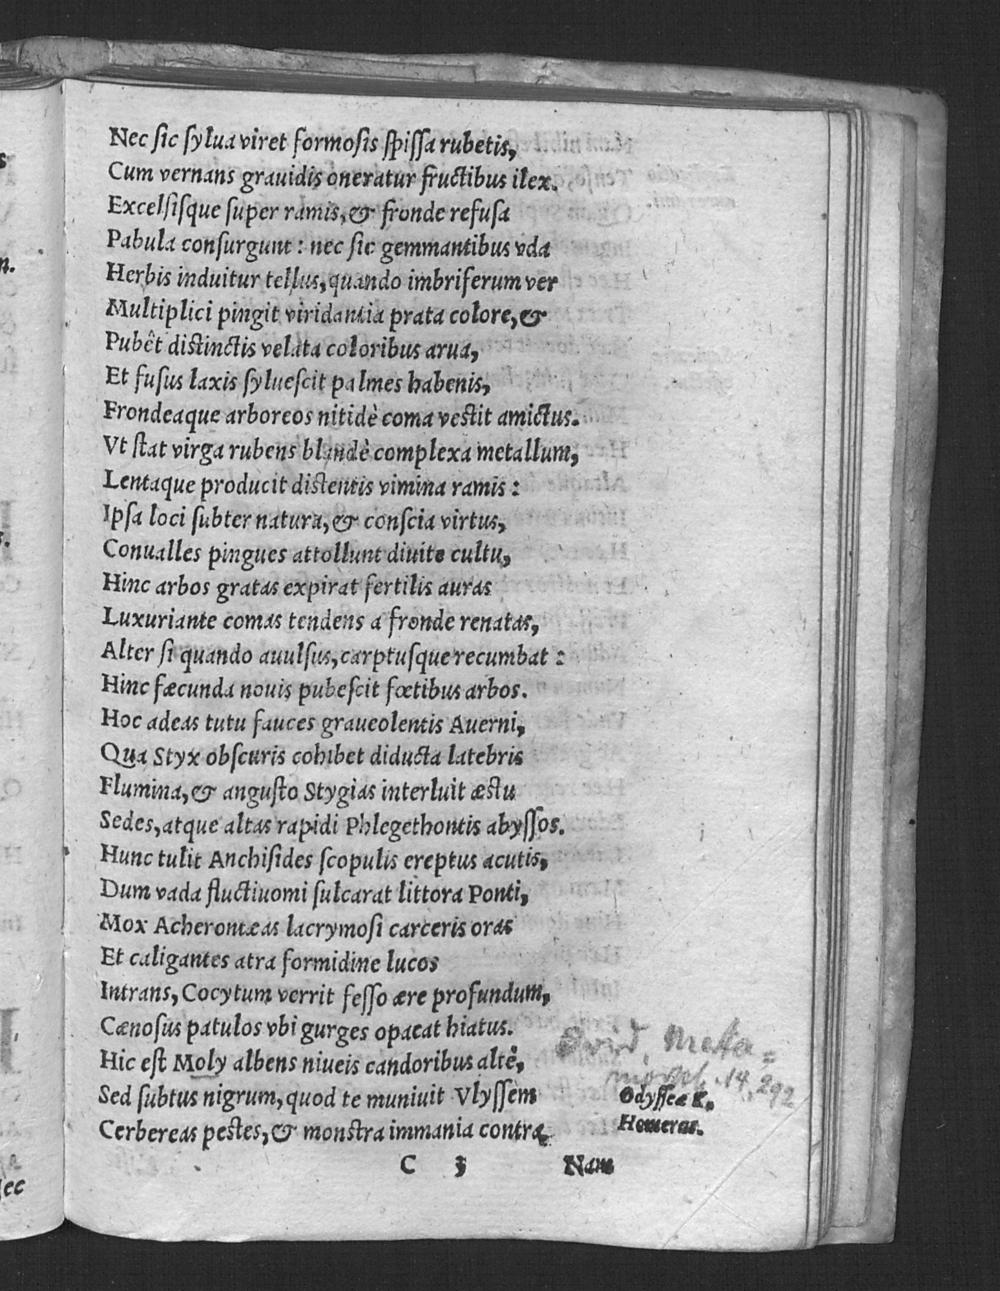 Nec ſic ſylua viret formoſis ſpiſſa rubetis,
Cum vernans grauidis oneratur fructibus ilex.
Excelſiſque ſuper ramis, & fronde refuſa
Pabula conſurgunt : nec ſic gemmantibus vda
Herbis induitur tellus, quando imbriferum ver
Multiplici pingit viridantia prata colore, &
Pubêt diſtinctis velata coloribus arua,
Et fuſus laxis ſylueſcit palmes habenis,
Frondeaque arboreos nitidè coma veſtit amictus.
Vt ſtat virga rubens blandè complexa metallum,
Lentaque producit diſtentis vimina ramis :
Ipſa loci ſubter natura, & conſcia virtus,
Conualles pingues attollunt diuite cultu,
Hinc arbos gratas expirat fertilis auras
Luxuriante comas tendens a fronde renatas,
Alter ſi quando auulſus, carptuſque recumbat :
Hinc fæcunda nouis pubeſcit fœtibus arbos.
Hoc adeas tutu fauces graueolentis Auerni,
Qua Styx obſcuris cohibet diducta latebris
Flumina, & anguſto Stygias interluit æſtu
Sedes, atque altas rapidi Phlegethontis abyſſos.
Hunc tulit Anchiſides ſcopulis ereptus acutis,
Dum vada fluctiuomi ſulcarat littora Ponti,
Mox Acherontæas lacrymoſi carceris oras
Et caligantes atra formidine lucos
Intrans, Cocytum verrit feſſo ære profundum,
Cænoſus patulos vbi gurges opacat hiatus.
Hic eſt Moly albens niueis candoribus altè,
Sed ſubtus nigrum, quod te muniuit Vlyſſem
Cerbereas peſtes, & monſtra immania contra
Ovid. Meta=
morph. 14. 292
Odyſſeæ K.
Homerus.
C 3
Nam